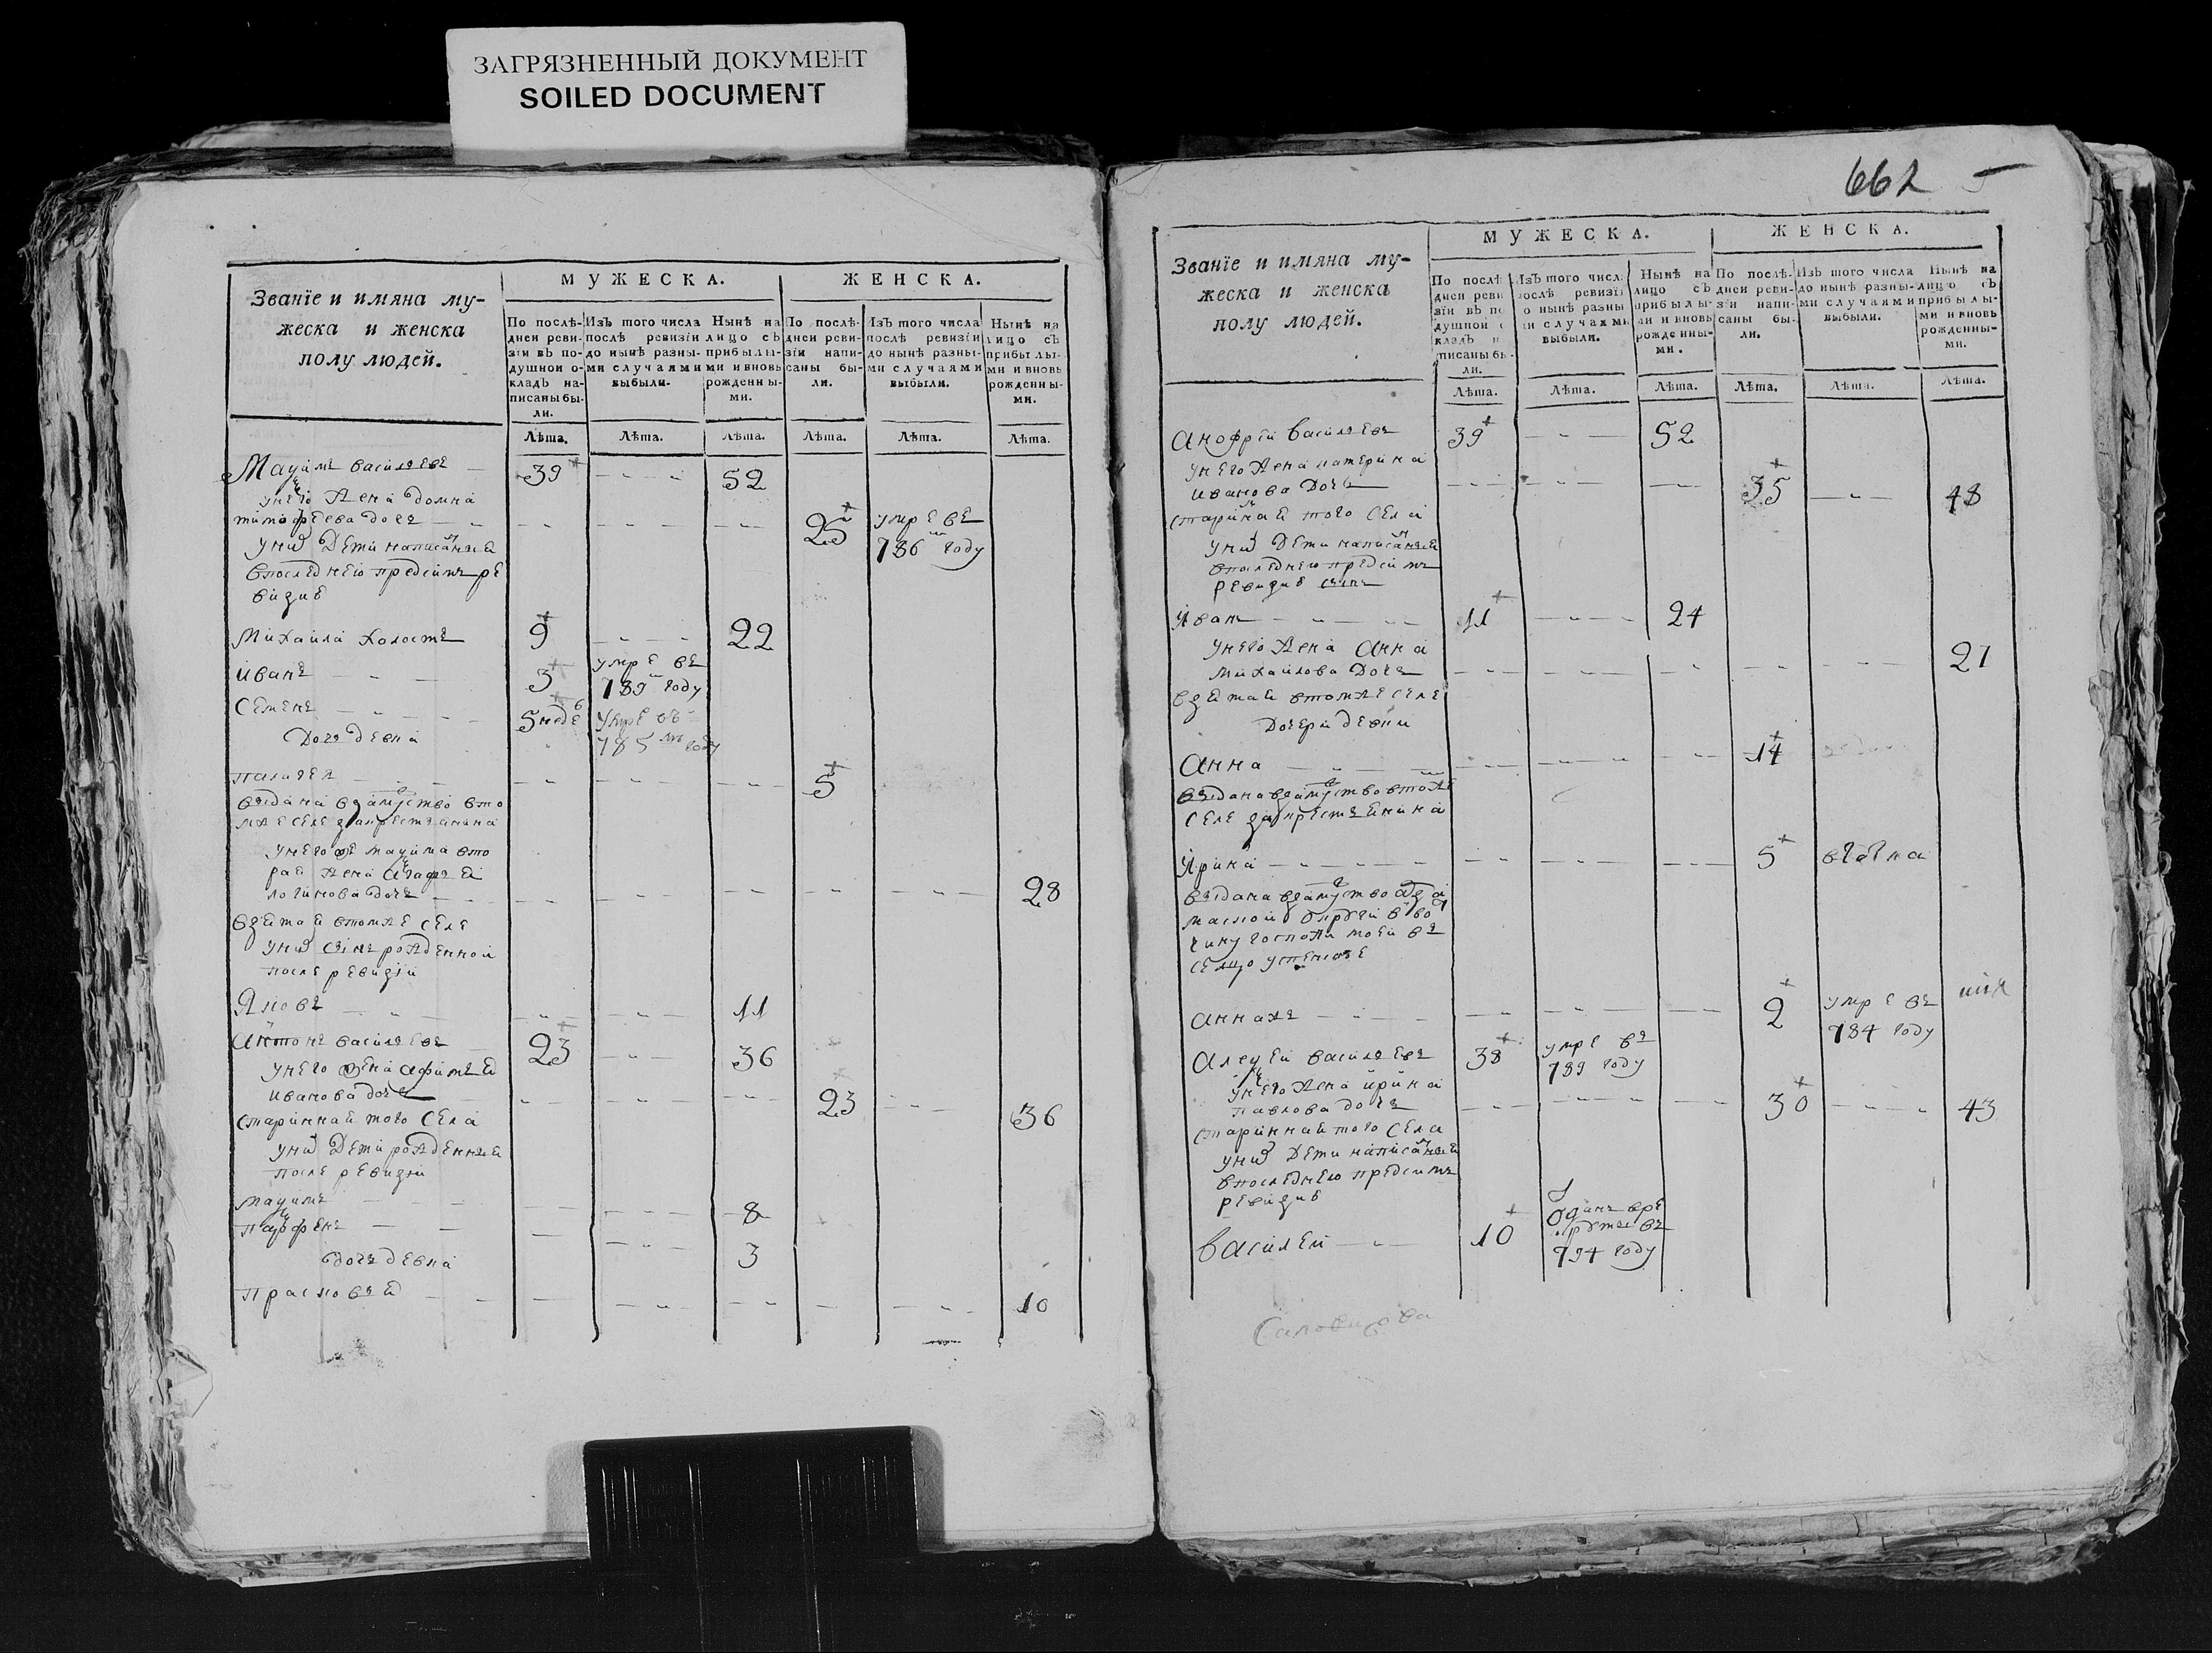 ЗАГРЯЗНЕННЫЙ ДОКУМЕНТ
SOILED DOCUMENT
Званїе и имяна му-
жеска и женска
полу людей.
МУЖЕСКА.
ЖЕНСКА.
По послѣ-
дней реви-
зїи въ по-
душной о-
кладъ на-
писаны бы-
ли.
Изъ того числа
послѣ ревизїи
до нынѣ разны-
ми случаями
выбыли.
Нынѣ на
лицо съ
прибылы-
ми и вновь
рожденны-
ми.
По послѣ-
дней реви-
зїи напи-
саны бы-
ли.
Изъ того числа
послѣ ревизїи
до нынѣ разны-
ми случаями
выбыли.
Нынѣ на
лицо съ
прибылы-
ми и вновь
рожденны-
ми.
Лѣта. Лѣта. Лѣта. Лѣта. Лѣта. Лѣта.
Маѯимъ васильевъ 39 52
унего жена домна
тимофѣева дочь 25 умре въ
786 году
униx дети написанныя
впоследнею предсимъ ре
визию
Михаила холостъ 9 22
иванъ 3 умре въ
789 году
Семенъ 5 неде умре въ
785 году
дочь девка
пелагея 5
выдана взамуство вто
мже селе закрестьянина
унего же маѯима вто
рая жена агафья
логинова дочь 28
взятая втомже селе
униx сынъ рожденной
после ревизїи
Яковъ 11
антонъ васильевъ 23 36
унего жена афимья
иванова дочь 23 36
старинная того села
униx дети рожденныя
после ревизїи
маѯимъ 8
парфенъ 3
дочь девка
прасковья 10
662 5
Званїе и имяна му-
жеска и женска
полу людей.
МУЖЕСКА.
ЖЕНСКА.
По послѣ
дней реви
зїи въ по
душной о
кладъ н
писаны бы-
ли.
Изъ того числ
послѣ ревизїи
о нынѣ разны
и случаями
выбыли.
Нынѣ на
лицо съ
прибылы-
ми и вновь
рожденны-
ми.
По послѣ-
дней реви-
зїи напи-
саны бы-
ли.
Изъ того числа
до нынѣ разны-
ми случаями
выбыли.
Нынѣ на
лицо съ
прибылы-
ми и вновь
рожденны-
ми.
Лѣта. Лѣта. Лѣта. Лѣта. Лѣта. Лѣта.
анофрїй васильевъ 39 52
унего жена катерина
иванова дочь 35 48
старинная того села
униx дети написанныя
впоследнею предсимъ
ревизию сынъ
Иванъ 11 24
унего жена анна
михайлова дочь 21
взятая втомже селе
дочери девки
анна 14
выдана взамуство втомже
селе закрестьянина
Ирина 5
выдана взамуство
господи моей въ
селцо успенское
аннажъ 2 умре въ
784 году
алеѯей васильевъ 38 умре въ
789 году
унего жена ирина
павлова дочь 30 43
старинная того села
униx дети написанныя
впоследнею предсимъ
ревизию
василей 10 оданъ вре
круты въ
794 году